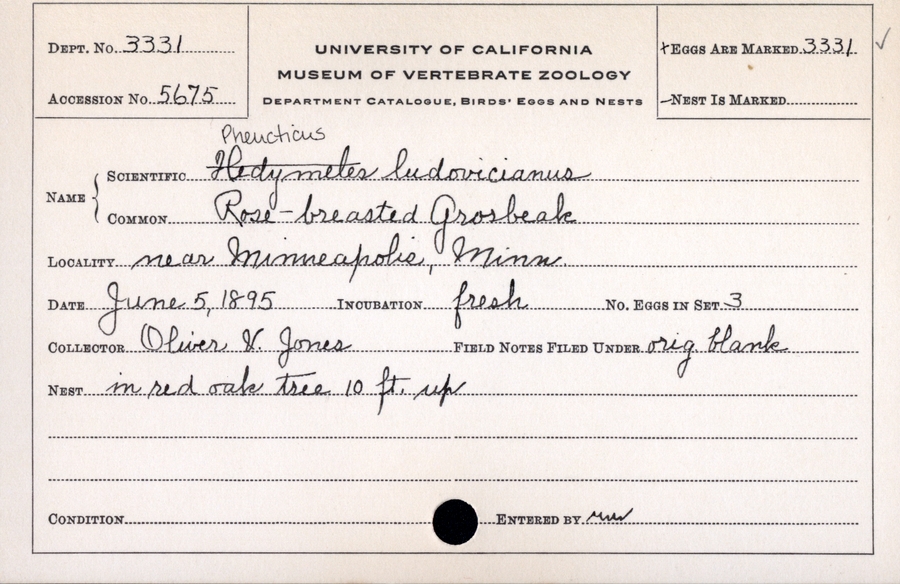 Dept. No. 3331
Accession No. 5675
UNIVERSITY OF CALIFORNIA
MUSEUM OF VERTEBRATE ZOOLOGY
Department Catalogue, Birds' Eggs and Nests
+Eggs Are Marked 3331 ✓
-Nest Is Marked
Pheucticus
Name { Scientific Hedymeles ludovicianus
Common Rose-breasted Grosbeak
Locality near Minneapolis, Minn.
Date June 5, 1895 Incubation fresh No. Eggs in Set 3
Collector Oliver V. Jones Field Notes Filed Under orig. blank
Nest in red oak tree 10 ft. up
Condition Entered by